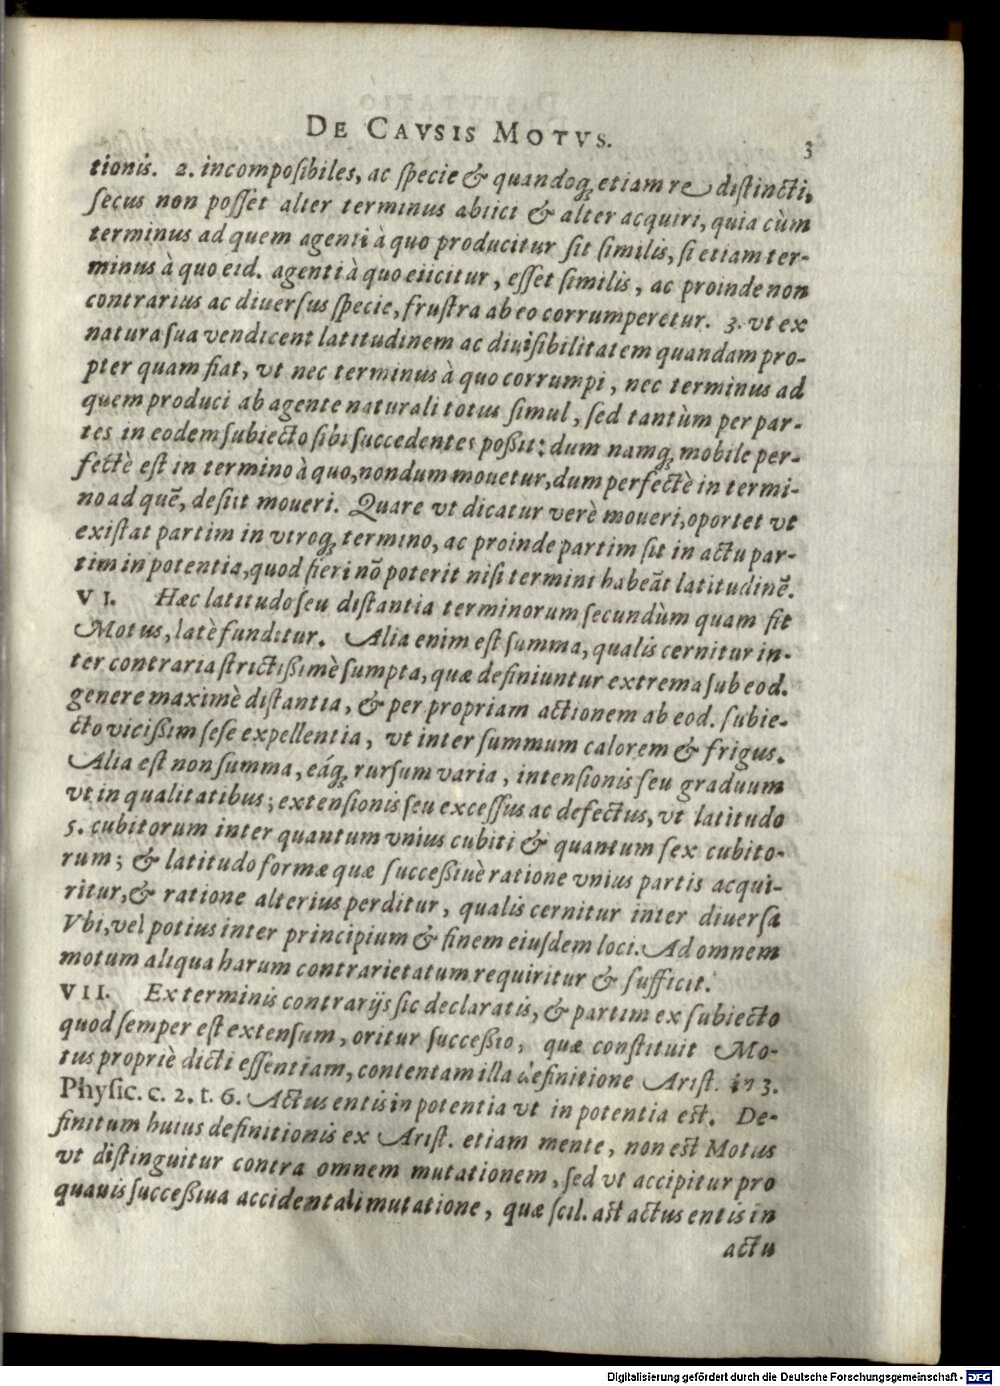 DE CAVSIS MOTVS. 3
tionis. 2. incomposibiles, ac specie & quandoq; etiam re distincti,
secus non posset alter terminus abiici & alter acquiri, quia cùm
terminus ad quem agenti à quo producitur sit similis, si etiam ter-
minus à quo eid. agenti à quo eiicitur, esset similis, ac proinde non
contrarius ac diuersus specie, frustra ab eo corrumperetur. 3. vt ex
natura sua vendicent latitudinem ac diuisibilitatem quandam pro-
pter quam fiat, vt nec terminus à quo corrumpi, nec terminus ad
quem produci ab agente naturali totus simul, sed tantùm per par-
tes in eodem subiecto sibi succedentes poßit: dum namq; mobile per-
fectè est in termino à quo, nondum mouetur, dum perfectè in termi-
no ad quē, desiit moueri. Quare vt dicatur verè moueri, oportet vt
existat partim in vtroq; termino, ac proinde partim sit in actu par-
tim in potentia, quod fieri nō poterit nisi termini habeāt latitudinē.
VI. Hæc latitudo seu distantia terminorum secundùm quam fit
Motus, latè funditur. Alia enim est summa, qualis cernitur in-
ter contraria strictißimè sumpta, quæ definiuntur extrema sub eod.
genere maximè distantia, & per propriam actionem ab eod. subie-
cto vicißim sese expellentia, vt inter summum calorem & frigus.
Alia est non summa, eáq; rursum varia, intensionis seu graduum
vt in qualitatibus; extensionis seu excessus ac defectus, vt latitudo
5. cubitorum inter quantum vnius cubiti & quantum sex cubito-
rum; & latitudo formæ quæ succeßiuè ratione vnius partis acqui-
ritur, & ratione alterius perditur, qualis cernitur inter diuersa
Vbi, vel potius inter principium & finem eiusdem loci. Ad omnem
motum aliqua harum contrarietatum requiritur & sufficit.
VII. Ex terminis contrarijs sic declaratis, & partim ex subiecto
quod semper est extensum, oritur succeßio, quæ constituit Mo-
tus propriè dicti essentiam, contentam illa definitione Arist. in 3.
Physic. c. 2. t. 6. Actus entis in potentia vt in potentia est. De-
finitum huius definitionis ex Arist. etiam mente, non est Motus
vt distinguitur contra omnem mutationem, sed vt accipitur pro
quauis succeßiua accidentali mutatione, quæ scil. ast actus entis in
actu
Digitalisierung gefördert durch die Deutsche Forschungsgemeinschaft - DFG